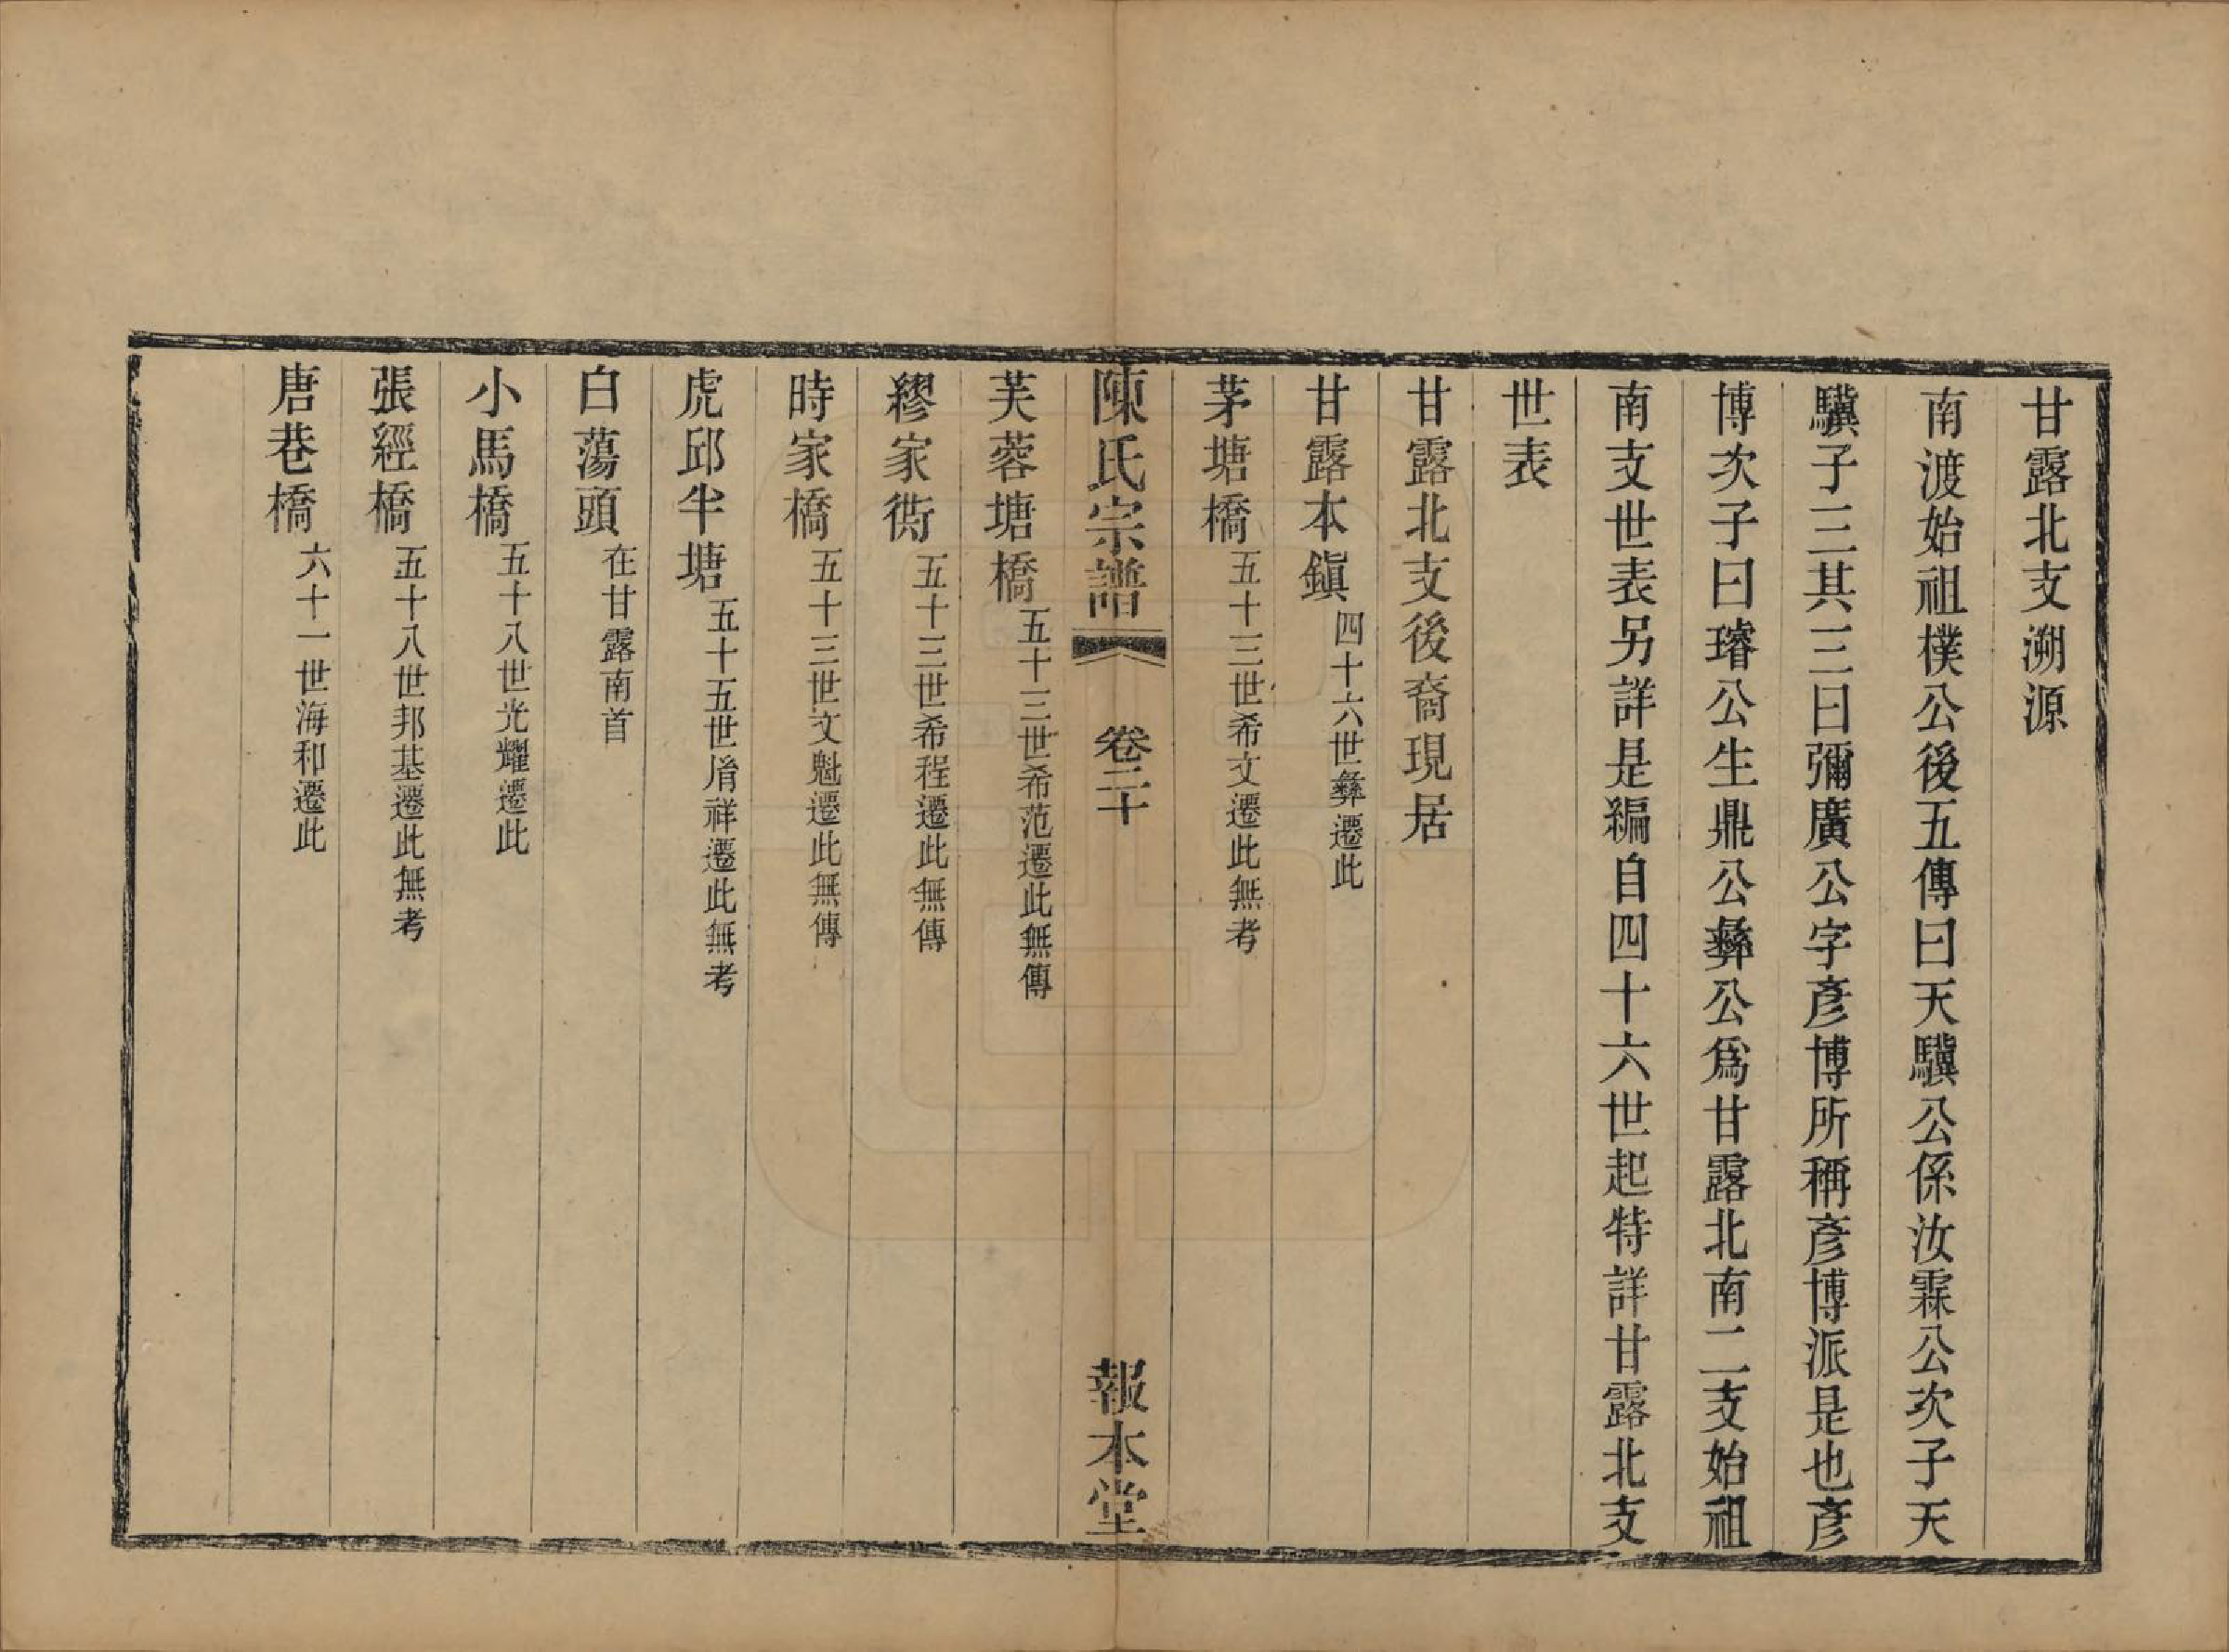 甘露北支溯源
南渡始祖樸公後五傳曰天驥公係汝霖公次子天
驥子三其三曰彌廣公字彥博所稱彥博派是也彥
博次子曰璿公生鼎公彝公爲甘露北南二支始祖
南支世表另詳是編自四十六世起特詳甘露北支
世表
甘露北支後裔現居
甘露本鎭 四十六世彝遷此
茅塘橋 五十三世希文遷此無考
陳氏宗譜 卷二十 報本堂
芙蓉塘橋 五十三世希范遷此無傳
繆家衖 五十三世希程遷此無傳
時家橋 五十三世文魁遷此無傳
虎邱半塘 五十五世胤祥遷此無考
白蕩頭 在甘露南首
小馬橋 五十八世光耀遷此
張經橋 五十八世邦基遷此無考
唐巷橋 六十一世海和遷此